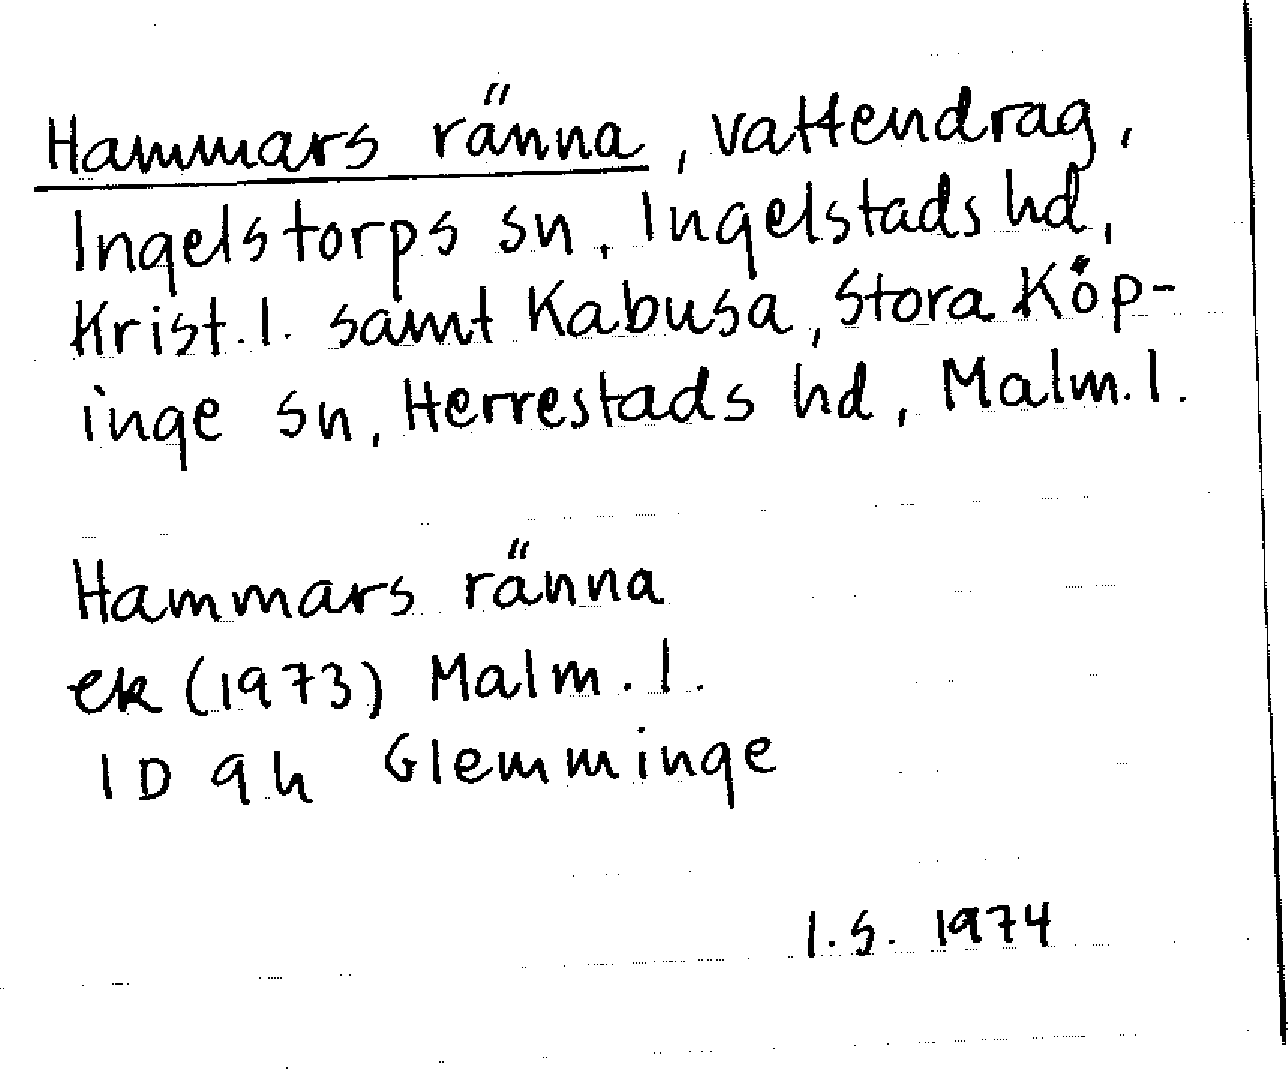 Hammars ränna, vattendrag,
Ingelstorps sn, Ingelstads hd,
Krist.l. samt Kabusa, Stora Köp-
inge sn, Herrestads hd, Malm.l.
Hammars ränna
ek (1973) Malm.l.
1D 9h Glemminge
I.S. 1974